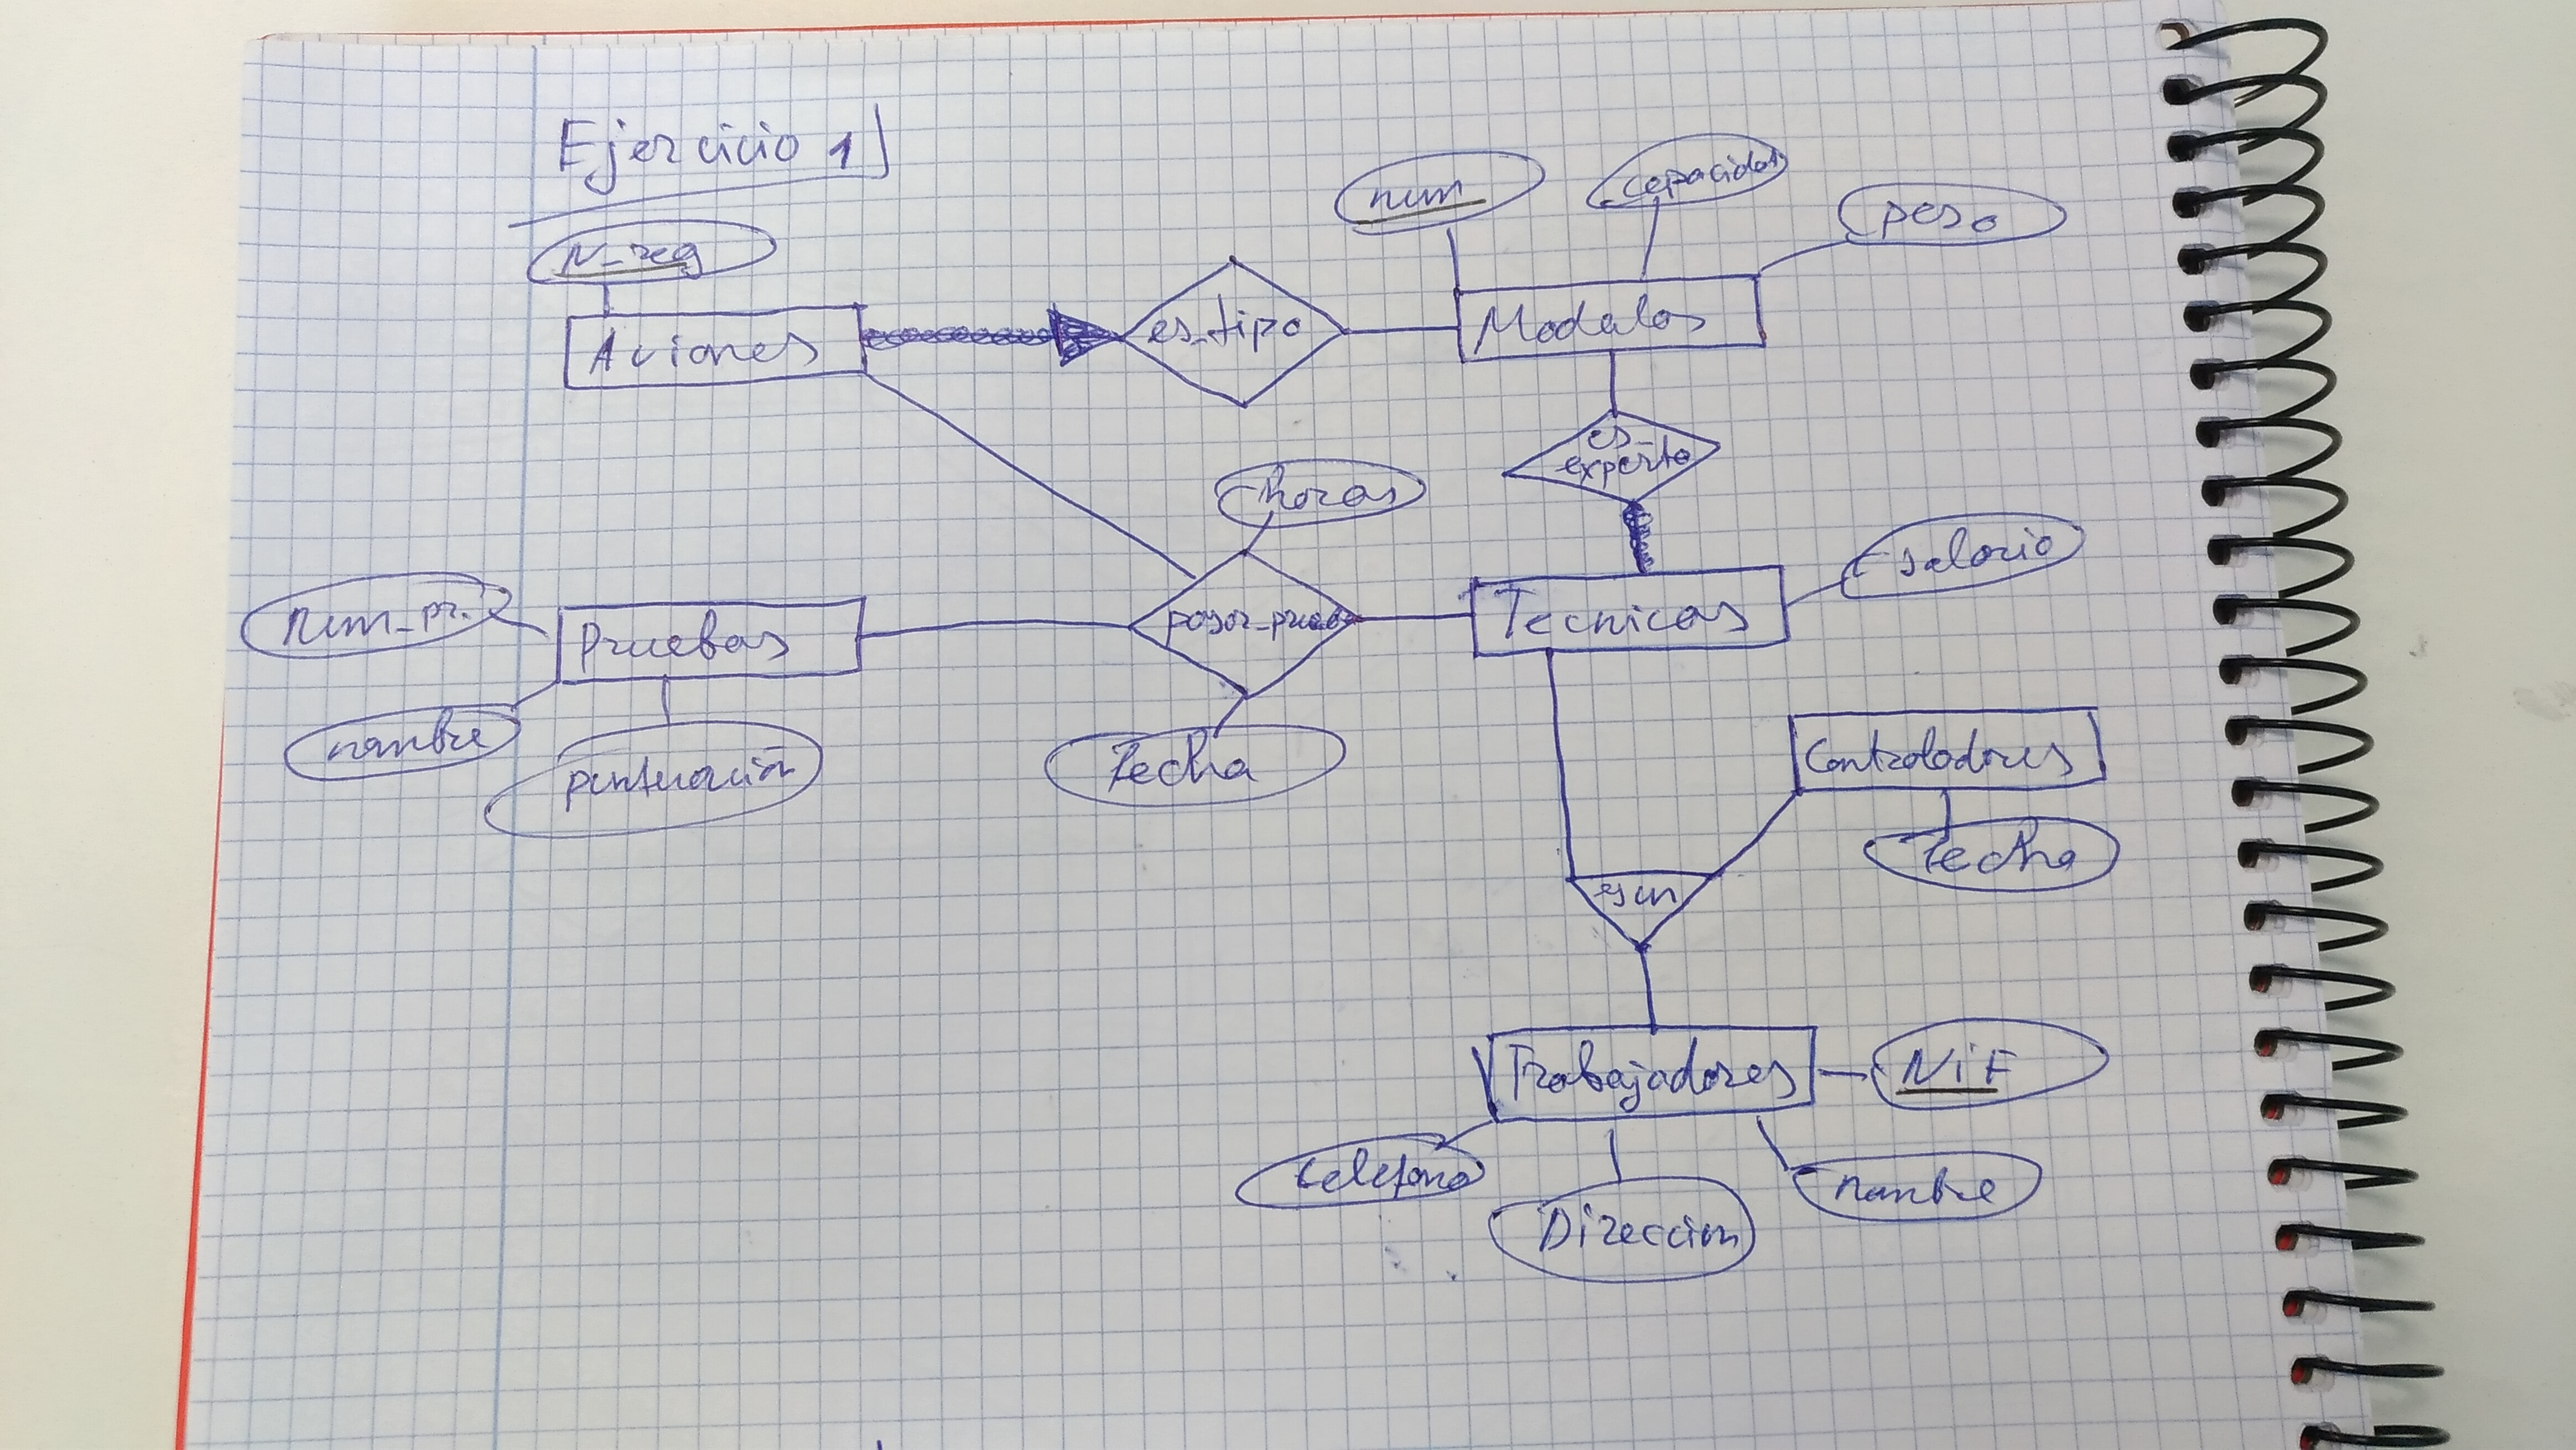 Ejercicio 1
N_reg
num
capacidad
peso
Aviones
es_tipo
Modelos
es_
experto
horas
salario
num_pr.
Pruebas
pasar_prueba
Tecnicos
nombre
puntuación
Fecha
Controladores
Fecha
es un
Trabajadores
NiF
telefono
Direccion
nombre